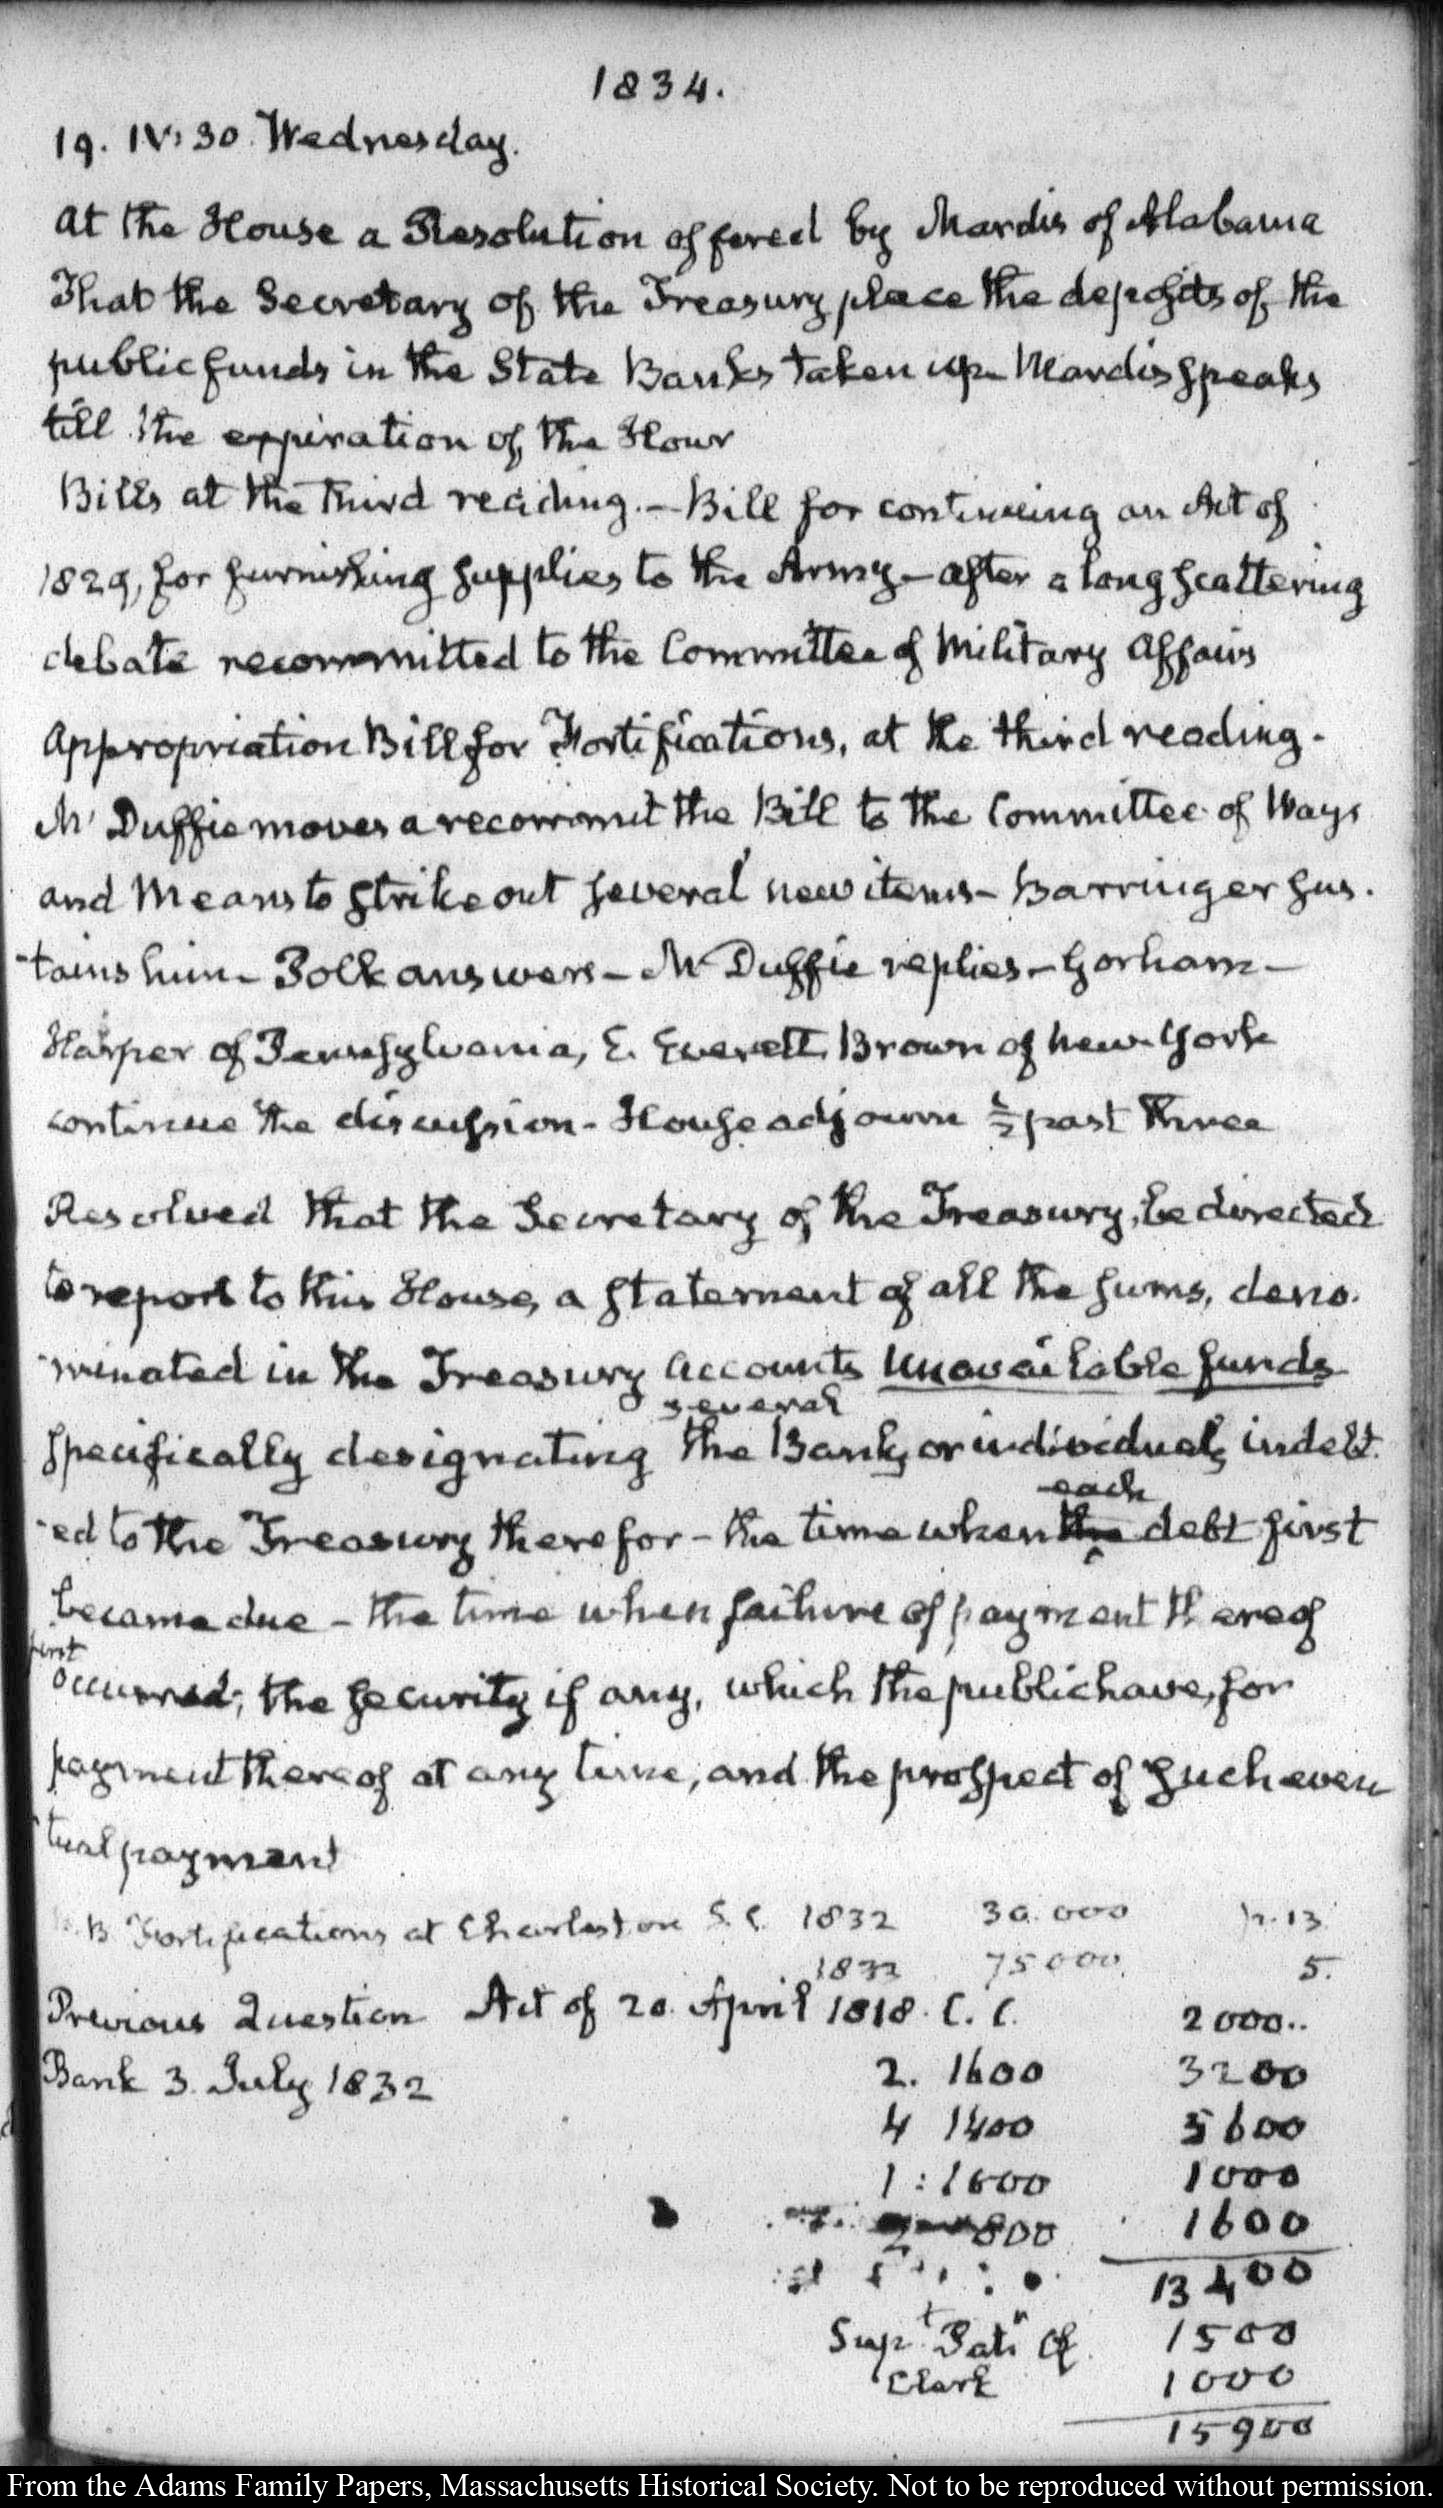 1834.
19. IV:30. Wednesday.
At the House a Resolution offered by Mardis of Alabama
That the Secretary of the Treasury place the deposits of the
public funds in the State Banks taken up – Mardis speaks
till the expiration of the Hour
Bills at the third reading. – Bill for continuing an Act of
1829, for furnishing supplies to the Army – after a long scattering
debate recommitted to the Committee of Military Affairs
Appropriation Bill for Fortifications, at the third reading.
Mc Duffie moves a recommit the Bill to the Committee of Ways
and Means to strike out several new items – Barringer sus-
tains him – Polk answers – Mc Duffie replies – Gorham –
Harper of Pennsylvania, E. Everett, Brown of New-York
continue the discussion – House adjourn ½ past three
Resolved that the Secretary of the Treasury, be directed
to report to this House, a statement of all the sums, deno-
minated in the Treasury accounts Unavailable funds
several
specifically designating the Banks or individuals indebt-
each
ed to the Treasury therefor – the time when the debt first
became due – the time when failure of payment thereof
first
occurred, the security if any, which the public have, for
payment thereof at any time, and the prospect of such even
tual payment
B Fortifications at Charleston S. C. 1832 30.000 13
1833 75000 5.
Previous Question Act of 20. April 1818. C. C. 2000..
Bank 3. July 1832 2. 1600 3200
4 1400 5600
1 : 1000 1000
2 800 1600
13400
Supt Patt Off
1500
Clerk 1000
15900
From the Adams Family Papers, Massachusetts Historical Society. Not to be reproduced without permission.